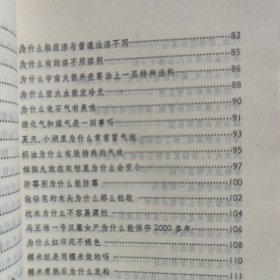 为什么船底漆与普通油漆不同 83
为什么有的漆不用溶剂 85
为什么宇宙火箭外壳要涂上一层特种涂料 86
为什么萤火虫能发冷光 88
为什么电石气有臭味 90
液化气和煤气是一回事吗 91
夏天，小湖里为什么常常冒气泡 93
奶油为什么有股特殊的气味 94
樟脑丸放在衣柜里为什么会变小 97
防霉剂为什么能防霉 100
做铅笔的木头为什么那么松软 102
枕木为什么不容易腐烂 104
马王堆一号汉墓女尸为什么能保存2000多年 106
为什么红印泥不褪色 108
糯米纸是用糯米做的吗 110
糯米煮熟后为什么发粘 111